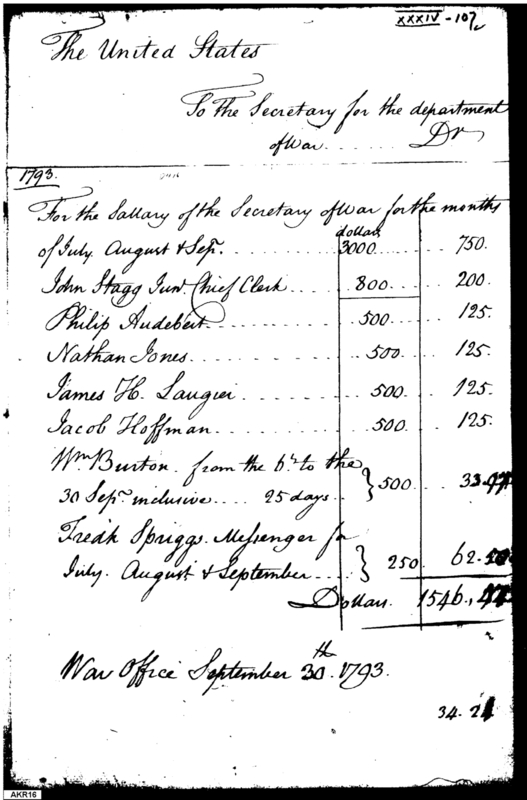 XXXIV - 107
The United States
To the Secretary for the department
of War ..... Dr
1793.
For the Sallary of the Secretary of War for the months
dollars
of July. August & Sepr. 3000 ..... 750.
John Stagg Junr. Chief Clerk ..... 800 ..... 200.
Philip Audebert ..... 500 ..... 125.
Nathan Jones ..... 500 ..... 125.
James H. Laugier ..... 500 ..... 125.
Jacob Hoffman ..... 500 ..... 125.
Wm Burton from the 6th to the
30 Sepr. inclusive .... 25 days .. } 500 ... 33.97
Fredk Spriggs Messenger for
July. August & September ... } 250 62.50
Dollars 1546.47
War Office September 30th. 1793.
34.2
AKR16